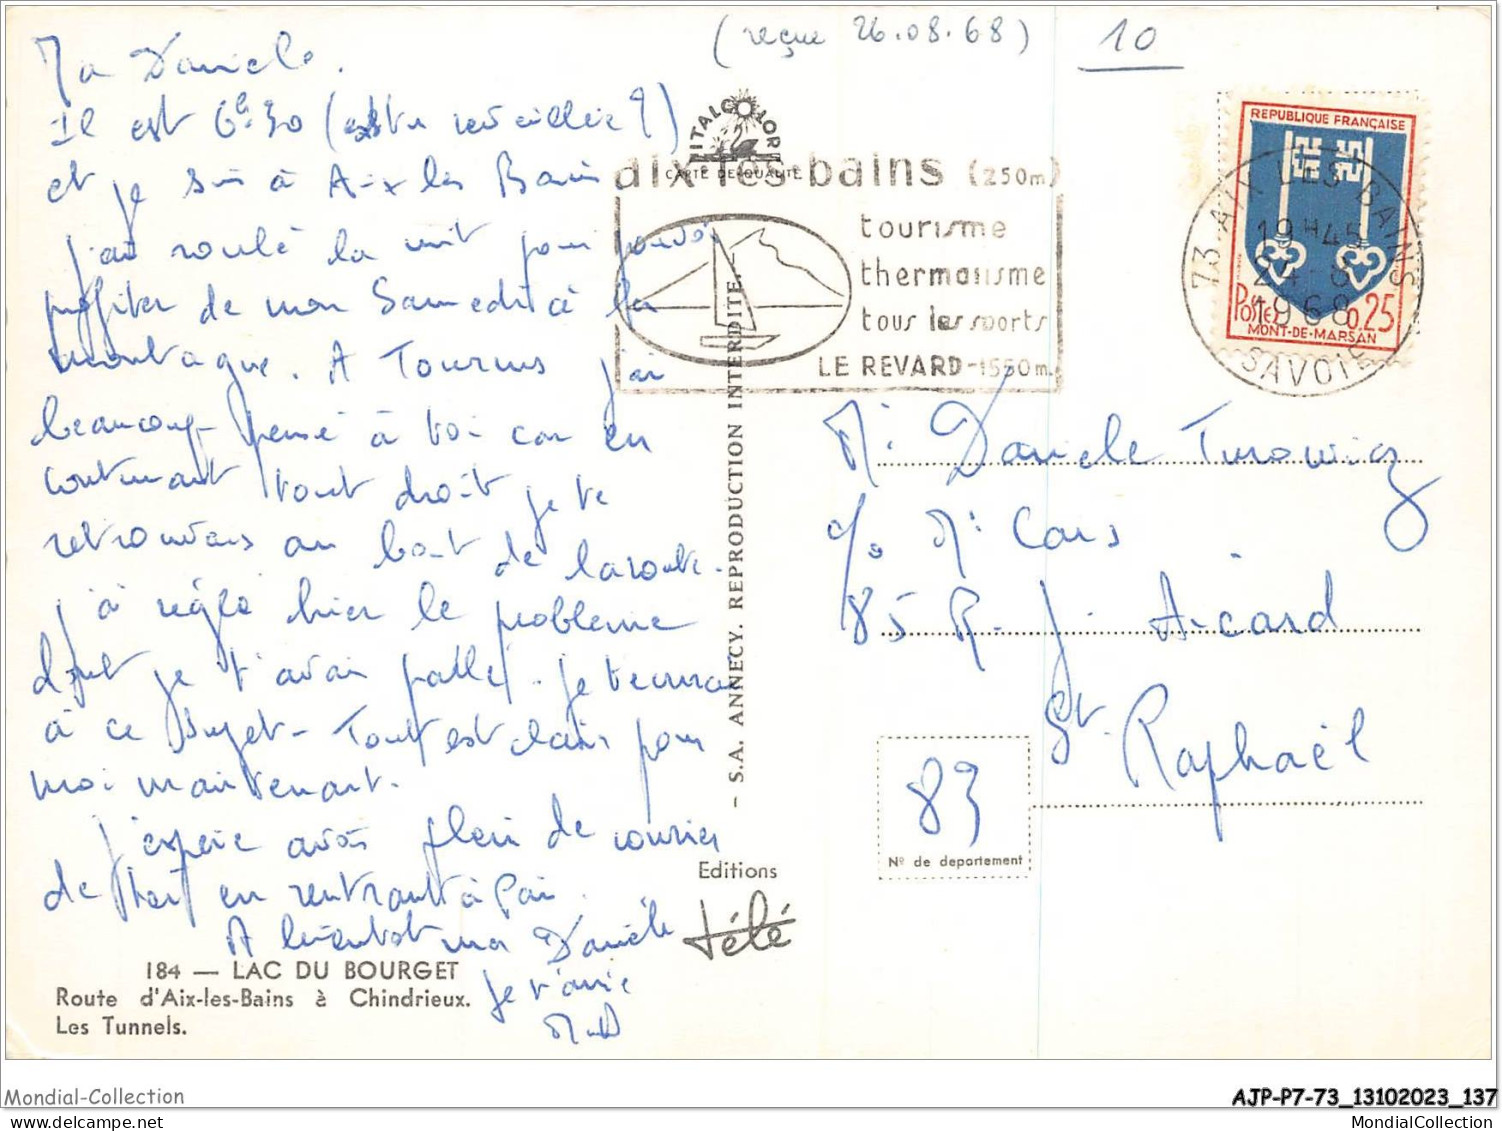 (reçue 26.08.68)
10
Ma Danièle.
Il est 6h30 (es tu réveillée ?)
et je suis à Aix les Bains
j'ai roulé la nuit pour pouvoir
profiter de mon Samedi à la
montagne. A Tournus j'ai
beaucoup pensé à toi car en
continuant tout droit je te
retrouvais au bout de la route.
J'ai réglé hier le problème
dont je t'avais parlé. Je
à ce sujet - Tout est clair pour
moi maintenant.
J'espère avoir plein de courrier
de toi en rentrant à Paris.
A bientôt ma Danièle
Je t'
184 — LAC DU BOURGET
Route d'Aix-les-Bains à Chindrieux.
Les Tunnels.
ITALCOLOR
CARTE DE QUALITÉ
aix-les-bains (250m)
tourisme
thermalisme
tous les sports
LE REVARD-1550m.
- S.A. ANNECY. REPRODUCTION INTERDITE. -
Editions
télé
REPUBLIQUE FRANÇAISE
POSTES 0,25
MONT-DE-MARSAN
73 AIX LES BAINS
19H45
24-8
1968
SAVOIE
Danièle Turowicz
c/o Mr Cors
85 R. J. Aicard
St. Raphaël
83
N° de departement
Mondial-Collection
AJP-P7-73_13102023_137
MondialCollection.com
MondialCollection.com